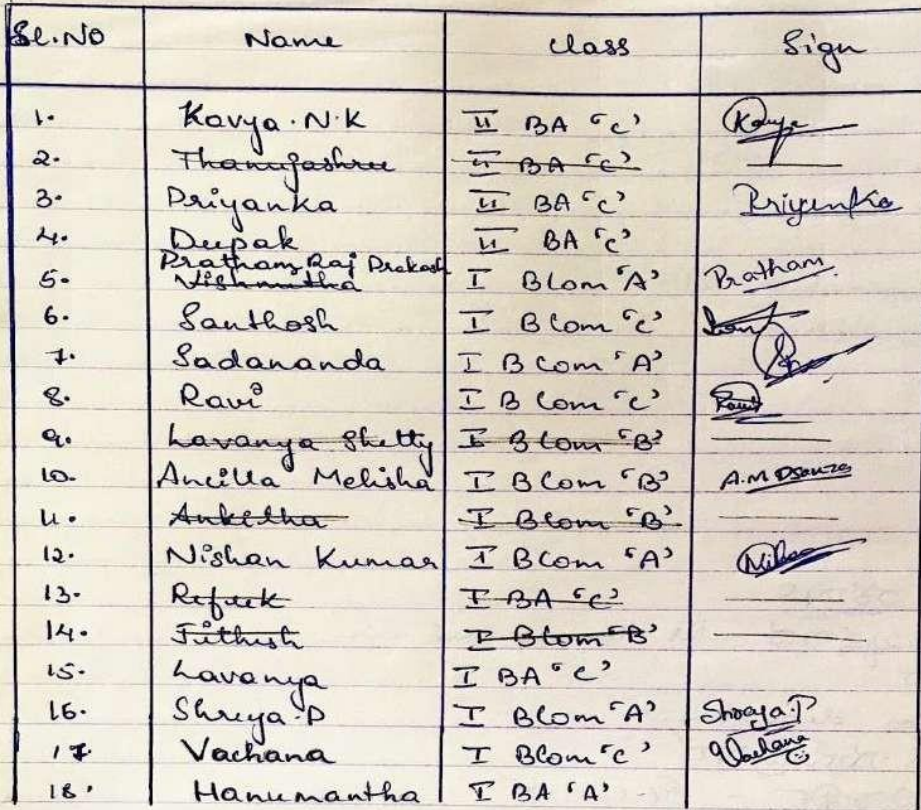 Sl.No Name Class Sign
1. Kavya.N.K II BA 'C' Kavya
2. Thanujashree II BA 'C'
3. Priyanka II BA 'C' Priyanka
4. Deepak II BA 'C'
Pratham Raj Prakash
5. Vishmitha I BCom 'A' Pratham
6. Santhosh I BCom 'C'
7. Sadananda I BCom 'A'
8. Ravi I BCom 'C'
9. Lavanya Shetty I BCom 'B'
10. Ancilla Melisha I BCom 'B' A.M Dsouza
11. Ankitha I BCom 'B'
12. Nishan Kumar I BCom 'A'
13. Refeek I BA 'C'
14. Jithesh I BCom 'B'
15. Lavanya I BA 'C'
16. Shreya.P I BCom 'A' Shreya.P
17. Vachana I BCom 'C' Vachana
18. Hanumantha I BA 'A'